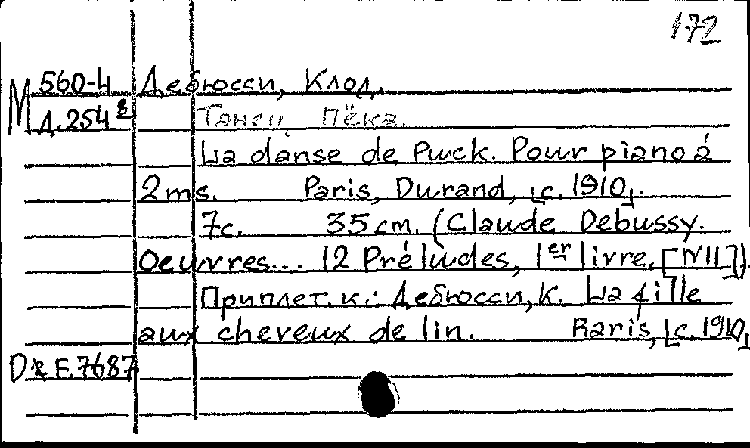 172
M 560-4 Дебюсси, Клод.
Д.254 8 Танец Пёка.
La danse de Puck. Pour piano à
2 ms. Paris, Durand, [c. 1910].
7c. 35 cm. (Claude Debussy.
Oeuvres... 12 Préludes, 1er livre. [N11]).
Приплет. к.: Дебюсси, К. La fille
aux cheveux de lin. Paris, [c. 1910]
D & F. 7687